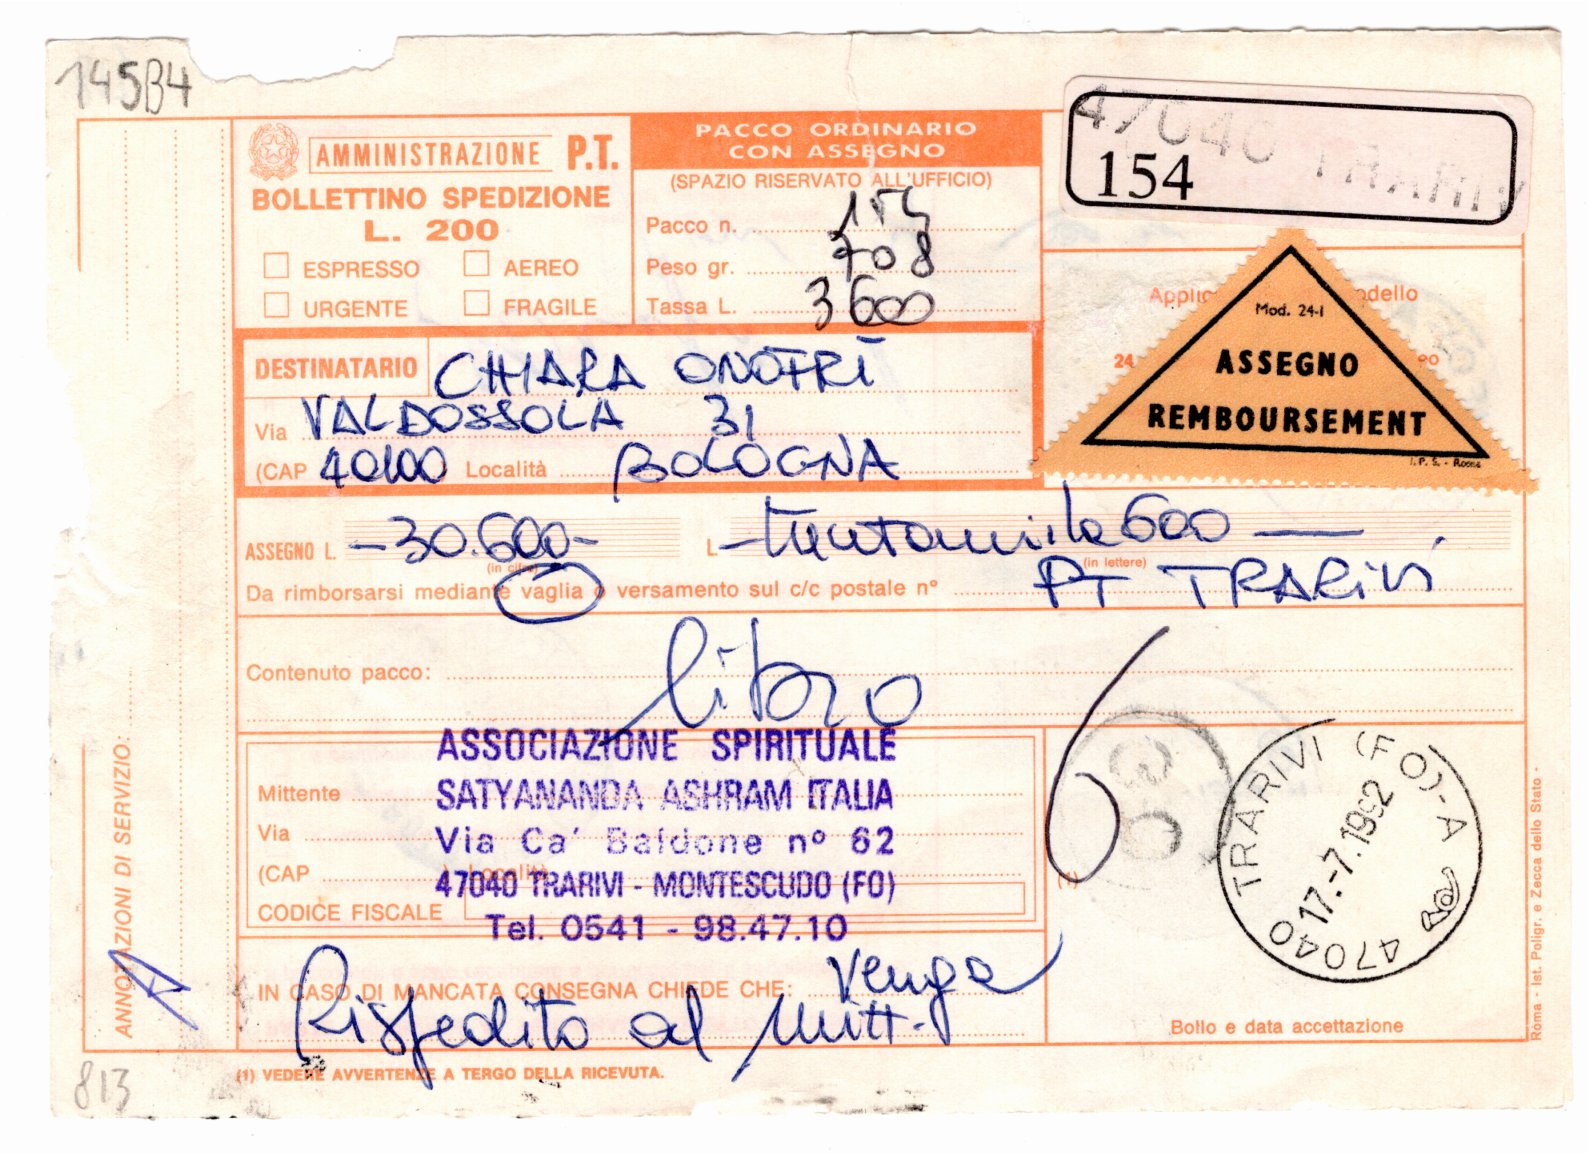 145B4
AMMINISTRAZIONE P.T.
BOLLETTINO SPEDIZIONE
L. 200
ESPRESSO AEREO
URGENTE FRAGILE
PACCO ORDINARIO
CON ASSEGNO
(SPAZIO RISERVATO ALL'UFFICIO)
Pacco n. 154
Peso gr. 708
Tassa L. 3600
47040 TRARIV
154
Mod. 24-I
ASSEGNO
REMBOURSEMENT
I. P. S. - Roma
24
DESTINATARIO CHIARA ONOFRI
Via VALDOSSOLA 31
(CAP 40100 Località BOLOGNA
ASSEGNO L. -30.600- L. -trentamila600-
(in cifre) (in lettere)
Da rimborsarsi mediante vaglia o versamento sul c/c postale n° PT TRARIVI
Contenuto pacco: libro
Mittente
Via
(CAP Località
CODICE FISCALE
ASSOCIAZIONE SPIRITUALE
SATYANANDA ASHRAM ITALIA
Via Ca' Baldone n° 62
47040 TRARIVI - MONTESCUDO (FO)
Tel. 0541 - 98.47.10
(1)
47040 TRARIVI (FO)-A
17.-7.1992
Bollo e data accettazione
IN CASO DI MANCATA CONSEGNA CHIEDE CHE: venga
Rispedito al Mitt.
(1) VEDERE AVVERTENZE A TERGO DELLA RICEVUTA.
ANNOTAZIONI DI SERVIZIO:
813
Roma - Ist. Poligr. e Zecca dello Stato -